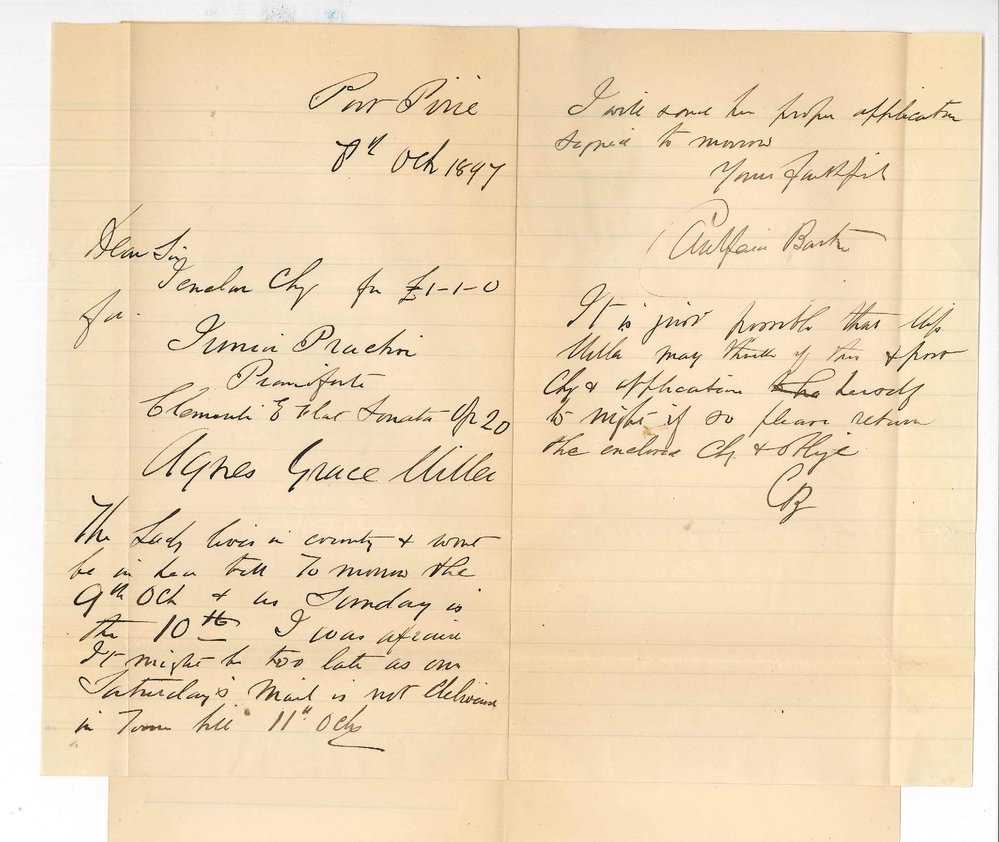 Port Pirie
8th Oct 1897
Dear Sir
I enclose Chq for £1-1-0
for
Junior Practical
Pianoforte
Clementi E Flat Sonata Op 20
Agnes Grace Miller
The Lady lives in country & wont
be in here till To morrow the
9th Oct & as Sunday is
the 10th I was afraid
It might be too late as our
Saturday's Mail is not delivered
in Town till 11th Oct
I will send her proper application
signed to morrow
Yours faithfully
Barton
It is just possible that Miss
Miller may think of this & post
Chq & application herself
to night if so please return
the enclosed Chq & oblige
CB